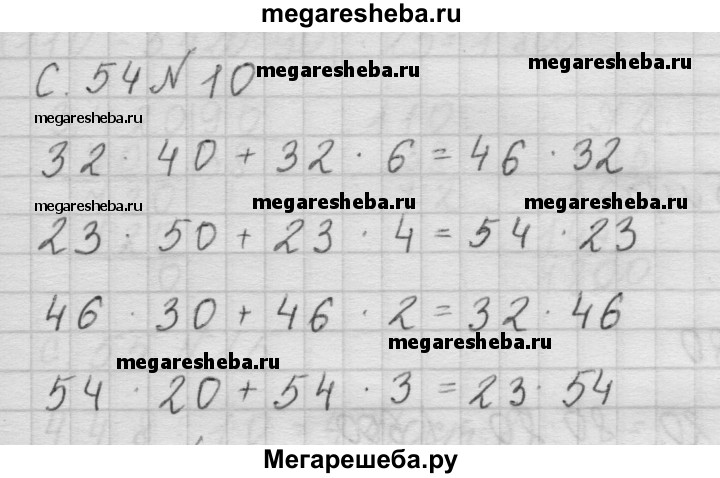 megaresheba.ru
С. 54 № 10
megaresheba.ru
megaresheba.ru
megaresheba.ru
32 · 40 + 32 · 6 = 46 · 32
megaresheba.ru
megaresheba.ru
megaresheba.ru
23 · 50 + 23 · 4 = 54 · 23
46 · 30 + 46 · 2 = 32 · 46
megaresheba.ru
megaresheba.ru
54 · 20 + 54 · 3 = 23 · 54
Мегарешеба.ру